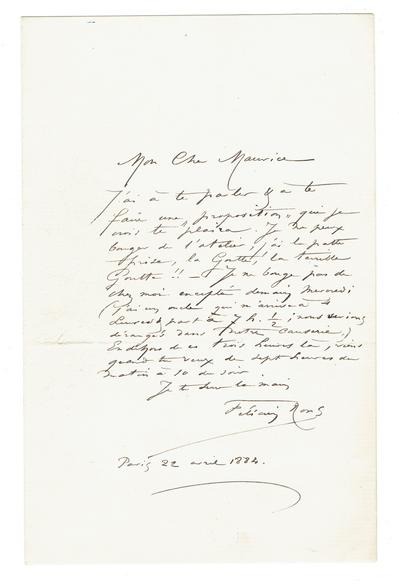 Mon Cher Maurice
J'ai à te parler & à te
faire une "proposition" que je
crois te plaira. Je ne peux
bouger de l'atelier, j'ai la patte
prise, la Goutte! la terrible
Goutte!! – Je ne bouge pas de
chez moi excepté demain Mercredi
(j'ai un oncle qui m'arrive à 4
heures & part à 7 h. ½, nous serions
dérangés dans notre causerie.)
En dehors de ces trois heures là, viens
quand tu veux de sept heures du
matin à 10 du soir
Je te serre la main
Félicien Rops
Paris 22 avril 1884.